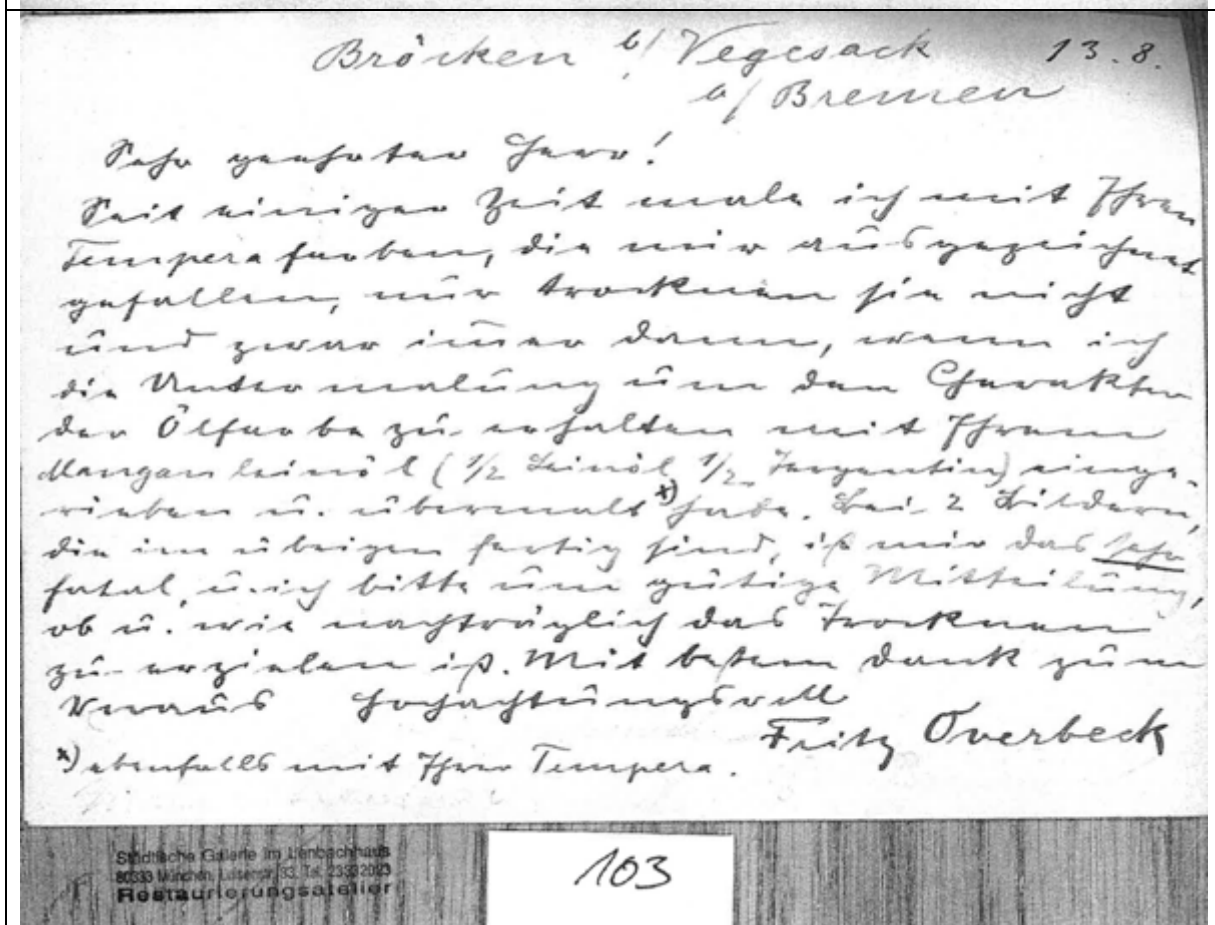 Bröcken b/ Vegesack 13.8.
b/ Bremen
Sehr geehrter Herr!
Seit einiger Zeit male ich mit Ihren
Temperafarben, die mir ausgezeichnet
gefallen, nur trocknen sie nicht
und zwar im̅er dann, wenn ich
die Untermalung um den Charakter
der Ölfarbe zu erhalten mit Ihrem
Manganleinöl (1/2 Leinöl 1/2 Terpentin) einge-
rieben u. übermalt x) habe. Bei 2 Bildern,
die im übrigen fertig sind, ist mir das sehr
fatal, u. ich bitte um gütige Mitteilung,
ob u. wie nachträglich das Trocknen
zu erzielen ist. Mit bestem Dank zum
Voraus Hochachtungsvoll
Fritz Overbeck
x) ebenfalls mit Ihrer Tempera.
Städtische Galerie im Lenbachhaus
80333 München, Luisenstr. 33, Tel. 23332023
Restaurierungsatelier
103